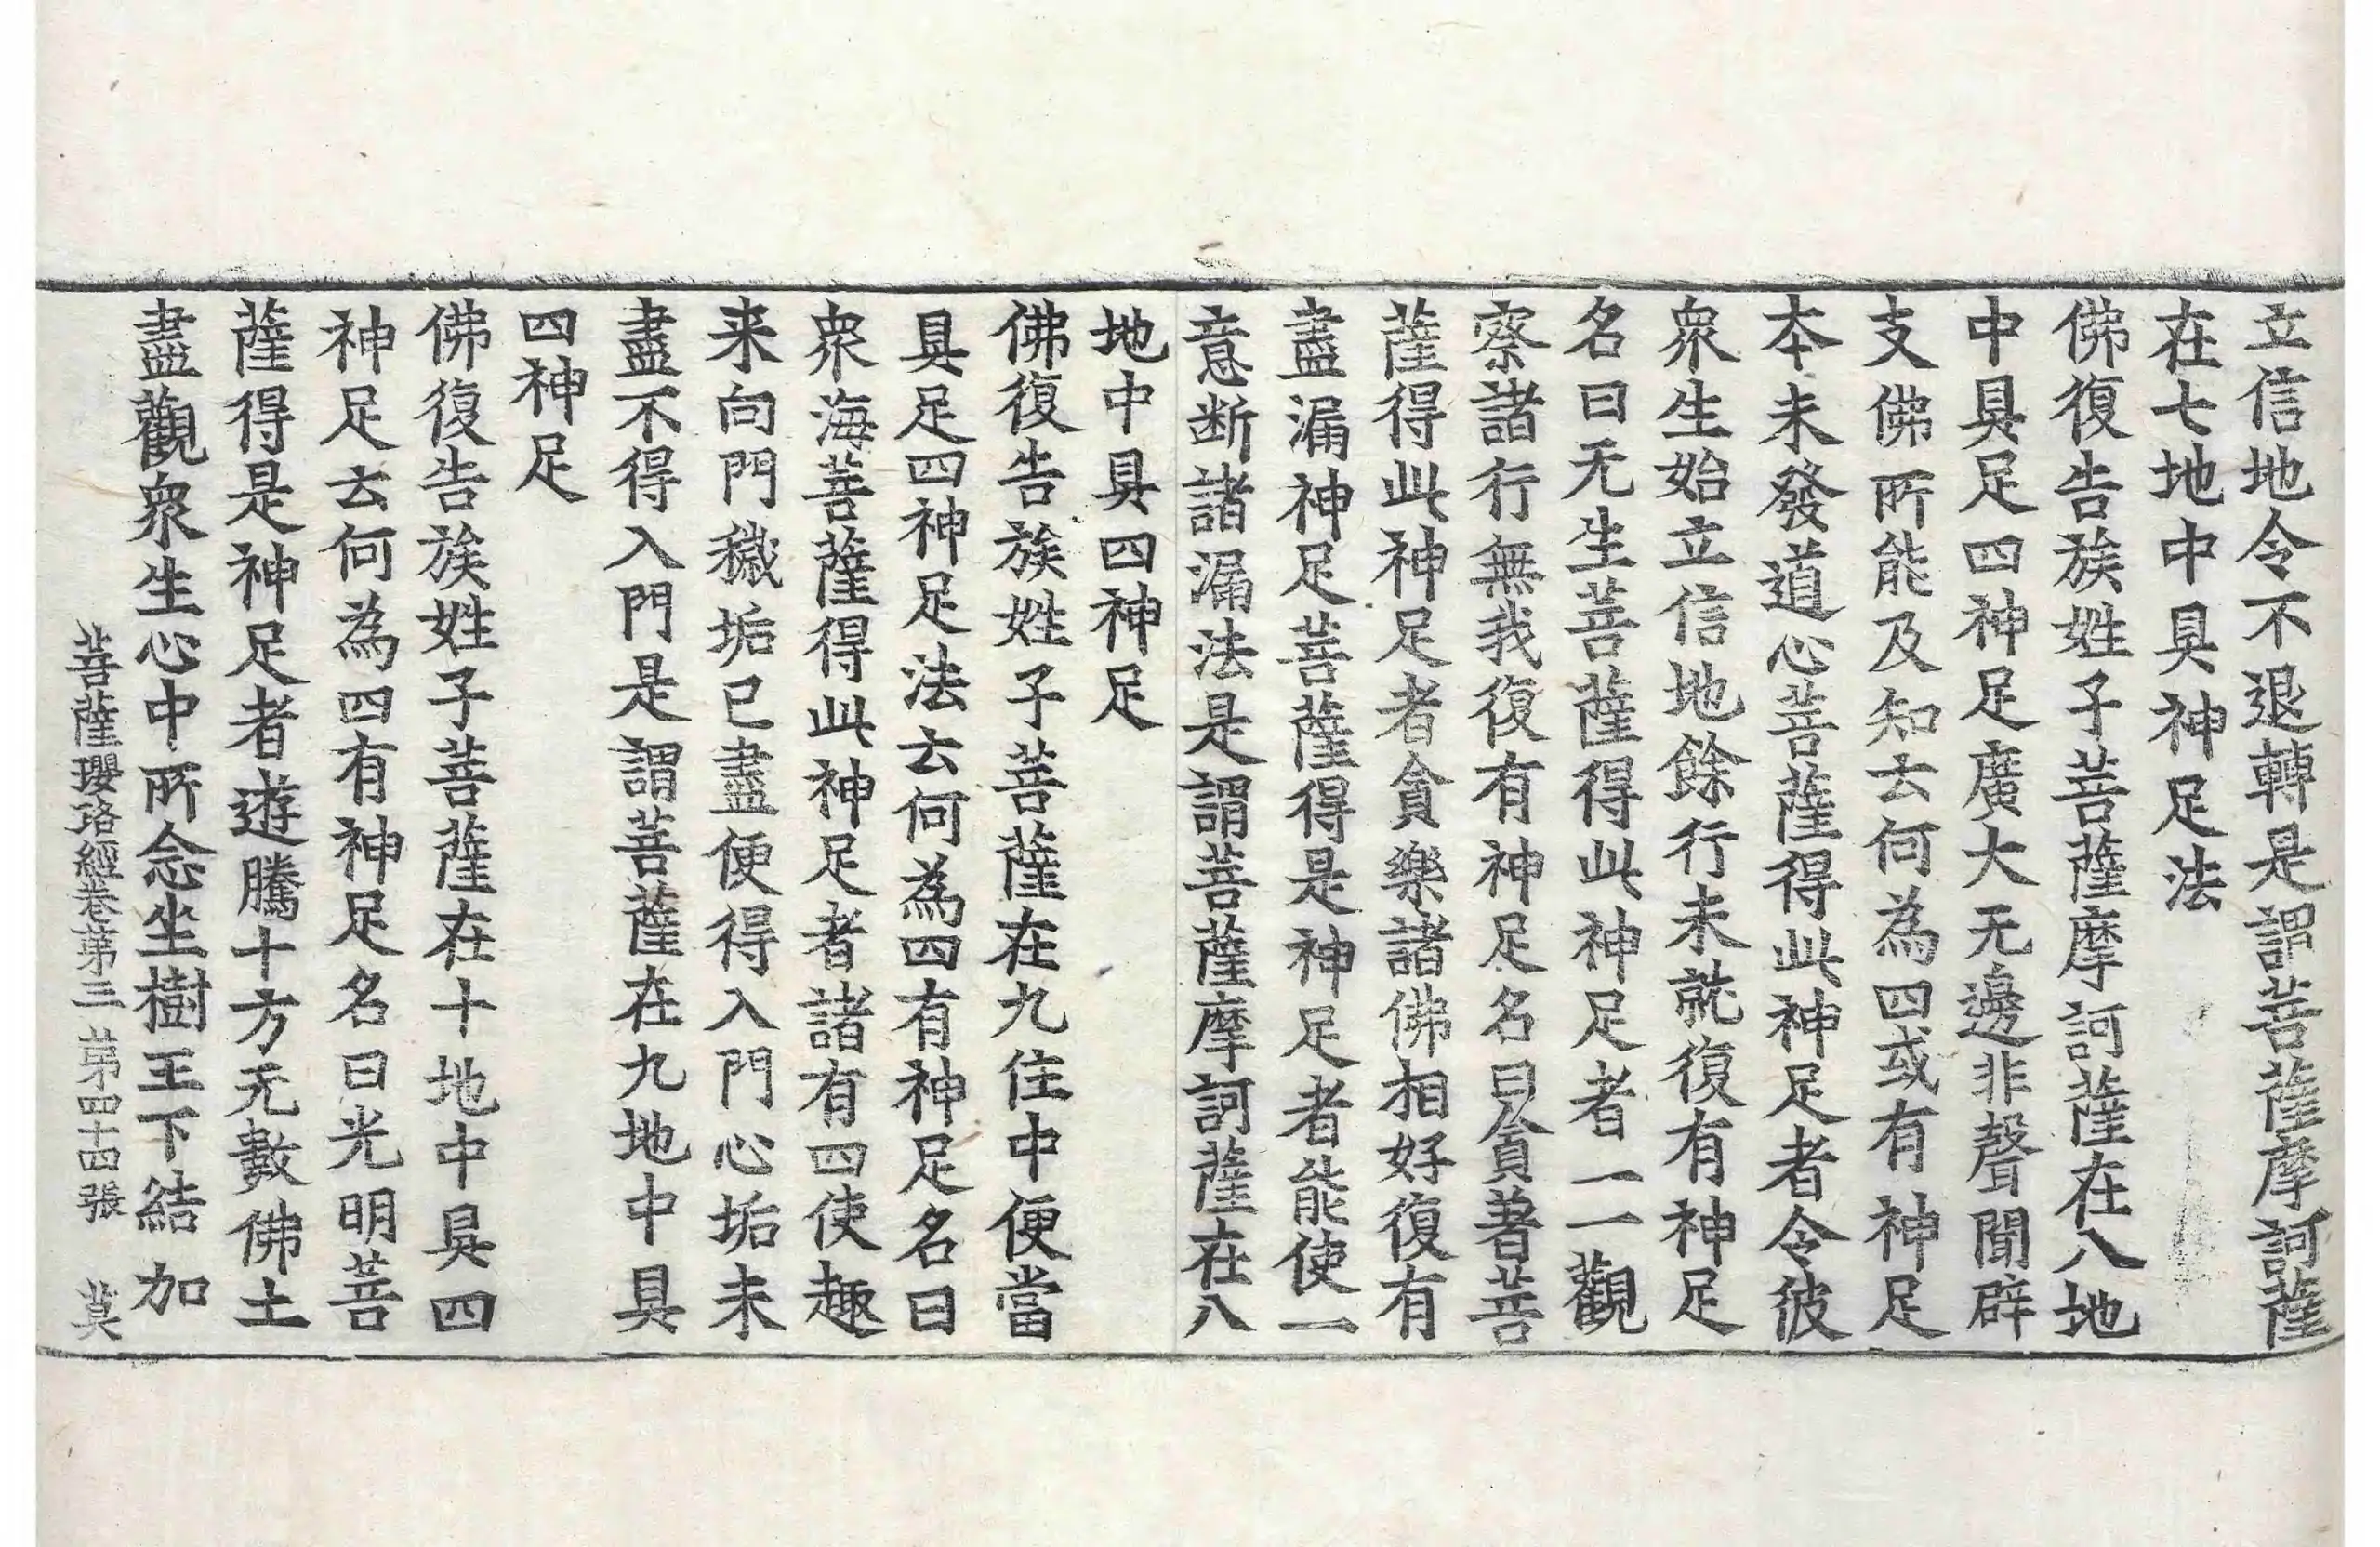 立信地令不退轉是謂菩薩摩訶薩
在七地中具神足法
佛復告族姓子菩薩摩訶薩在八地
中具足四神足廣大无邊非聲聞辟
支佛所能及知云何為四或有神足
本未發道心菩薩得此神足者令彼
衆生始立信地餘行未就復有神足
名曰无生菩薩得此神足者一一觀
察諸行無我復有神足名曰貪著菩
薩得此神足者貪樂諸佛相好復有
盡漏神足菩薩得是神足者能使一
意断諸漏法是謂菩薩摩訶薩在八
地中具四神足
佛復告族姓子菩薩在九住中便當
具足四神足法云何為四有神足名曰
衆海菩薩得此神足者諸有四使趣
来向門穢垢已盡便得入門心垢未
盡不得入門是謂菩薩在九地中具
四神足
佛復告族姓子菩薩在十地中具四
神足云何為四有神足名曰光明菩
薩得是神足者遊騰十方无數佛土
盡觀衆生心中所念坐樹王下結加
菩薩瓔珞經卷第三 第四十四張 莫